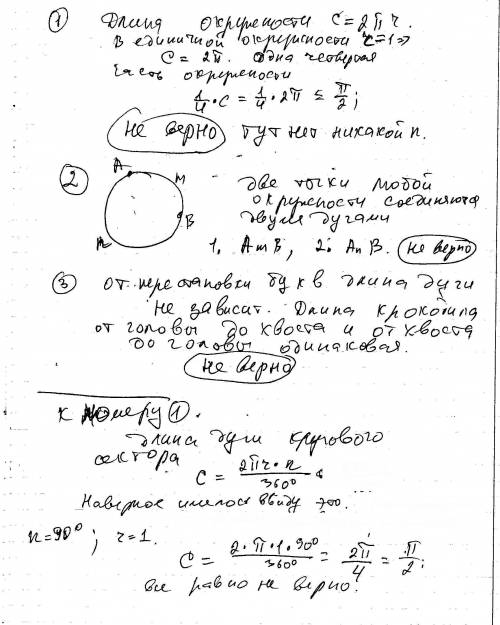 ① Длина окружности C = 2πr.
В единичной окружности r=1 ⇒
C = 2π. одна четвертая
часть окружности
1/4 · C = 1/4 · 2π = π/2;
не верно тут нет никакой n.
② A M B n
две точки любой
окружности соединяются
двумя дугами
1. AmB, 2. AnB. не верно
③ от перестановки букв длина дуги
не зависит. Длина крокодила
от головы до хвоста и от хвоста
до головы одинаковая.
не верно
к номеру ①.
длина дуги кругового
сектора
C = 2πr·n/360°
Наверное имелось ввиду это.
n=90°; r=1.
C = 2·π·1·90°/360° = 2π/4 = π/2;
все равно не верно.